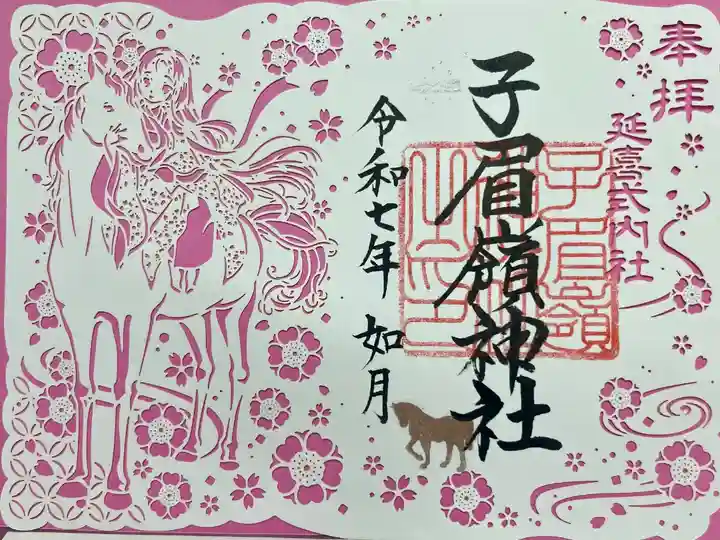 奉拝
延喜式内社
子眉嶺神社
子眉嶺
神社
之印
令和七年 如月